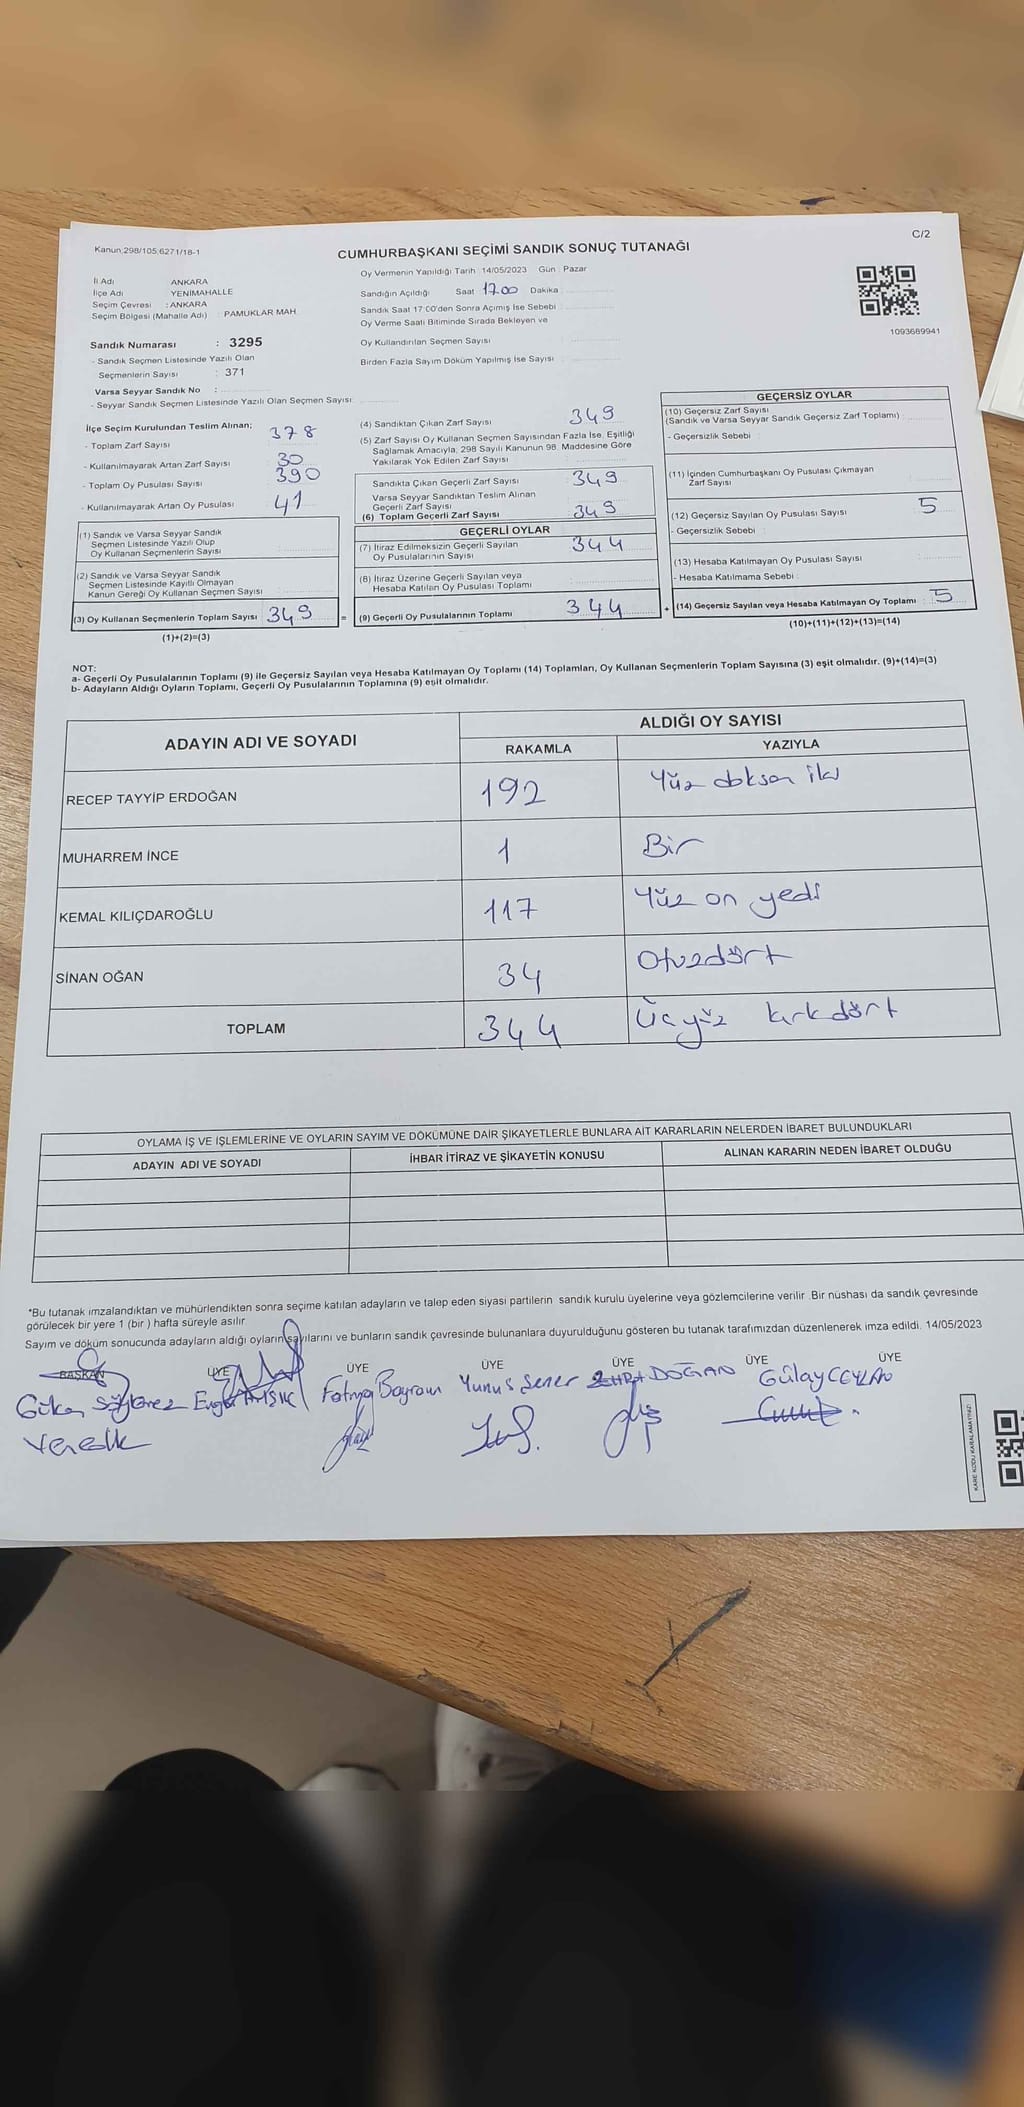 Kanun:298/105;6271/18-1
C/2
CUMHURBAŞKANI SEÇİMİ SANDIK SONUÇ TUTANAĞI
İl Adı ANKARA
İlçe Adı YENİMAHALLE
Seçim Çevresi : ANKARA
Seçim Bölgesi (Mahalle Adı) : PAMUKLAR MAH.
Sandık Numarası : 3295
- Sandık Seçmen Listesinde Yazılı Olan
Seçmenlerin Sayısı : 371
Varsa Seyyar Sandık No :
- Seyyar Sandık Seçmen Listesinde Yazılı Olan Seçmen Sayısı:
Oy Vermenin Yapıldığı Tarih 14/05/2023 Gün : Pazar
Sandığın Açıldığı Saat 17.00 Dakika
Sandık Saat 17:00'den Sonra Açılmış İse Sebebi
Oy Verme Saati Bitiminde Sırada Bekleyen ve
Oy Kullandırılan Seçmen Sayısı
Birden Fazla Sayım Döküm Yapılmış İse Sayısı
1093689941
İlçe Seçim Kurulundan Teslim Alınan;
- Toplam Zarf Sayısı 378
- Kullanılmayarak Artan Zarf Sayısı 30
- Toplam Oy Pusulası Sayısı 390
- Kullanılmayarak Artan Oy Pusulası 41
(1) Sandık ve Varsa Seyyar Sandık
Seçmen Listesinde Yazılı Olup
Oy Kullanan Seçmenlerin Sayısı
(2) Sandık ve Varsa Seyyar Sandık
Seçmen Listesinde Kayıtlı Olmayan
Kanun Gereği Oy Kullanan Seçmen Sayısı
(3) Oy Kullanan Seçmenlerin Toplam Sayısı 349 =
(1)+(2)=(3)
(4) Sandıktan Çıkan Zarf Sayısı 349
(5) Zarf Sayısı Oy Kullanan Seçmen Sayısından Fazla İse, Eşitliği
Sağlamak Amacıyla; 298 Sayılı Kanunun 98. Maddesine Göre
Yakılarak Yok Edilen Zarf Sayısı
Sandıkta Çıkan Geçerli Zarf Sayısı 349
Varsa Seyyar Sandıktan Teslim Alınan
Geçerli Zarf Sayısı
(6) Toplam Geçerli Zarf Sayısı 349
GEÇERLİ OYLAR
(7) İtiraz Edilmeksizin Geçerli Sayılan
Oy Pusulalarının Sayısı 344
(8) İtiraz Üzerine Geçerli Sayılan veya
Hesaba Katılan Oy Pusulası Toplamı
(9) Geçerli Oy Pusulalarının Toplamı 344 +
GEÇERSİZ OYLAR
(10) Geçersiz Zarf Sayısı
(Sandık ve Varsa Seyyar Sandık Geçersiz Zarf Toplamı) :
- Geçersizlik Sebebi :
(11) İçinden Cumhurbaşkanı Oy Pusulası Çıkmayan
Zarf Sayısı
(12) Geçersiz Sayılan Oy Pusulası Sayısı 5
- Geçersizlik Sebebi :
(13) Hesaba Katılmayan Oy Pusulası Sayısı
- Hesaba Katılmama Sebebi :
(14) Geçersiz Sayılan veya Hesaba Katılmayan Oy Toplamı : 5
(10)+(11)+(12)+(13)=(14)
NOT:
a- Geçerli Oy Pusulalarının Toplamı (9) ile Geçersiz Sayılan veya Hesaba Katılmayan Oy Toplamı (14) Toplamları, Oy Kullanan Seçmenlerin Toplam Sayısına (3) eşit olmalıdır. (9)+(14)=(3)
b- Adayların Aldığı Oyların Toplamı, Geçerli Oy Pusulalarının Toplamına (9) eşit olmalıdır.
ADAYIN ADI VE SOYADI
ALDIĞI OY SAYISI
RAKAMLA YAZIYLA
RECEP TAYYİP ERDOĞAN 192 Yüz doksan iki
MUHARREM İNCE 1 Bir
KEMAL KILIÇDAROĞLU 117 Yüz on yedi
SİNAN OĞAN 34 Otuzdört
TOPLAM 344 Üçyüz kırkdört
OYLAMA İŞ VE İŞLEMLERİNE VE OYLARIN SAYIM VE DÖKÜMÜNE DAİR ŞİKAYETLERLE BUNLARA AİT KARARLARIN NELERDEN İBARET BULUNDUKLARI
ADAYIN ADI VE SOYADI İHBAR İTİRAZ VE ŞİKAYETİN KONUSU ALINAN KARARIN NEDEN İBARET OLDUĞU
*Bu tutanak imzalandıktan ve mühürlendikten sonra seçime katılan adayların ve talep eden siyasi partilerin sandık kurulu üyelerine veya gözlemcilerine verilir. Bir nüshası da sandık çevresinde
görülecek bir yere 1 (bir ) hafta süreyle asılır.
Sayım ve döküm sonucunda adayların aldığı oyların sayılarını ve bunların sandık çevresinde bulunanlara duyurulduğunu gösteren bu tutanak tarafımızdan düzenlenerek imza edildi. 14/05/2023
BAŞKAN ÜYE ÜYE ÜYE ÜYE ÜYE ÜYE
Fatma Bayram Yunus Şener DOĞAN Gülay CEYLAN
KARE KODU KARALAMAYINIZ!